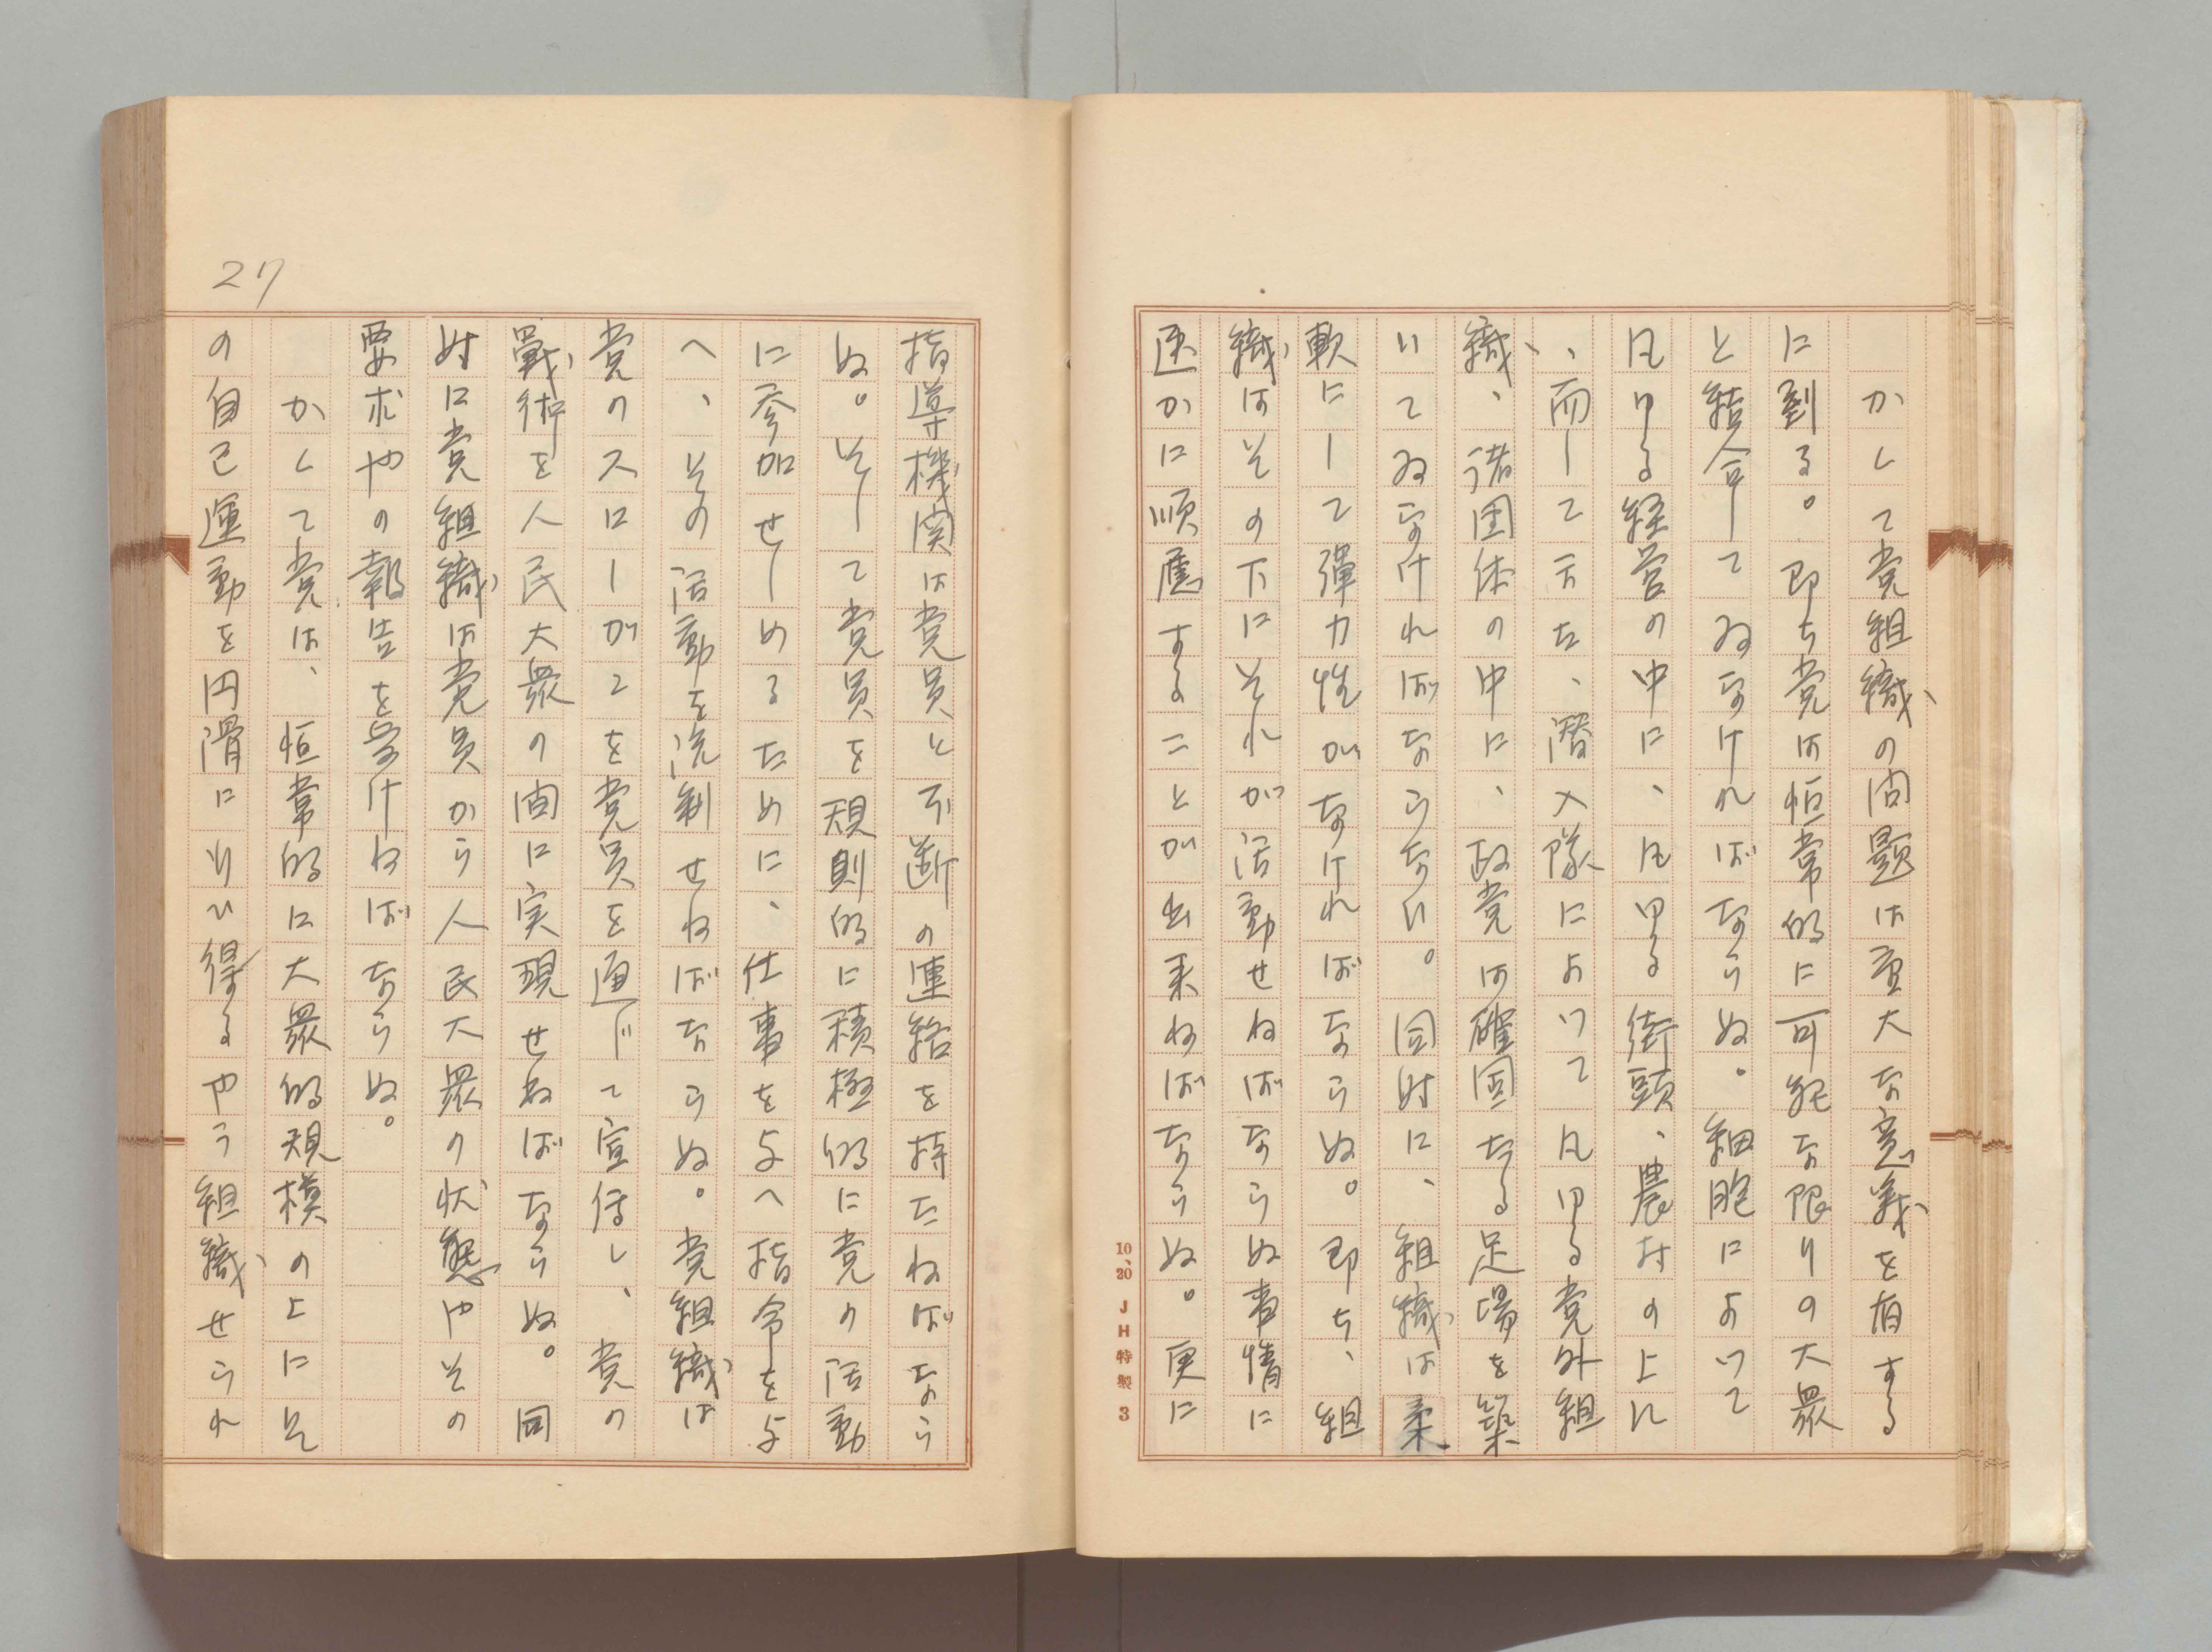 かくて党組織の問題は重大な意義を有する
に到る。即ち党は恒常的に可能な限りの大衆
と結合してゐなければならぬ。細胞によつて
凡ゆる経営の中に、凡ゆる街頭、農村の上に
、而して亦た、潜入隊によつて凡ゆる党外組
織、諸団体の中に、政党は確固たる足場を築
いてゐなければならない。同時に、組織は柔
軟にして弾力性がなければならぬ。即ち、組
織はその下にそれが活動せねばならぬ事情に
迅かに順應することが出来ねばならぬ。更に
10、20 JH特製 3
27
指導機関は党員と不断の連絡を持たねばなら
ぬ。そして党員を規則的に積極的に党の活動
に参加せしめるために、仕事を与へ指令を与
へ、その活動を統制せねばならぬ。党組織は
党のスローガンを党員を通じて宣伝し、党の
戦術を人民大衆の間に実現せねばならぬ。同
時に党組織は党員から人民大衆の状態やその
要求やの報告を受けねばならぬ。
かくて党は、恒常的に大衆的規模の上にそ
の自己運動を円滑に行ひ得るやう組織せられ